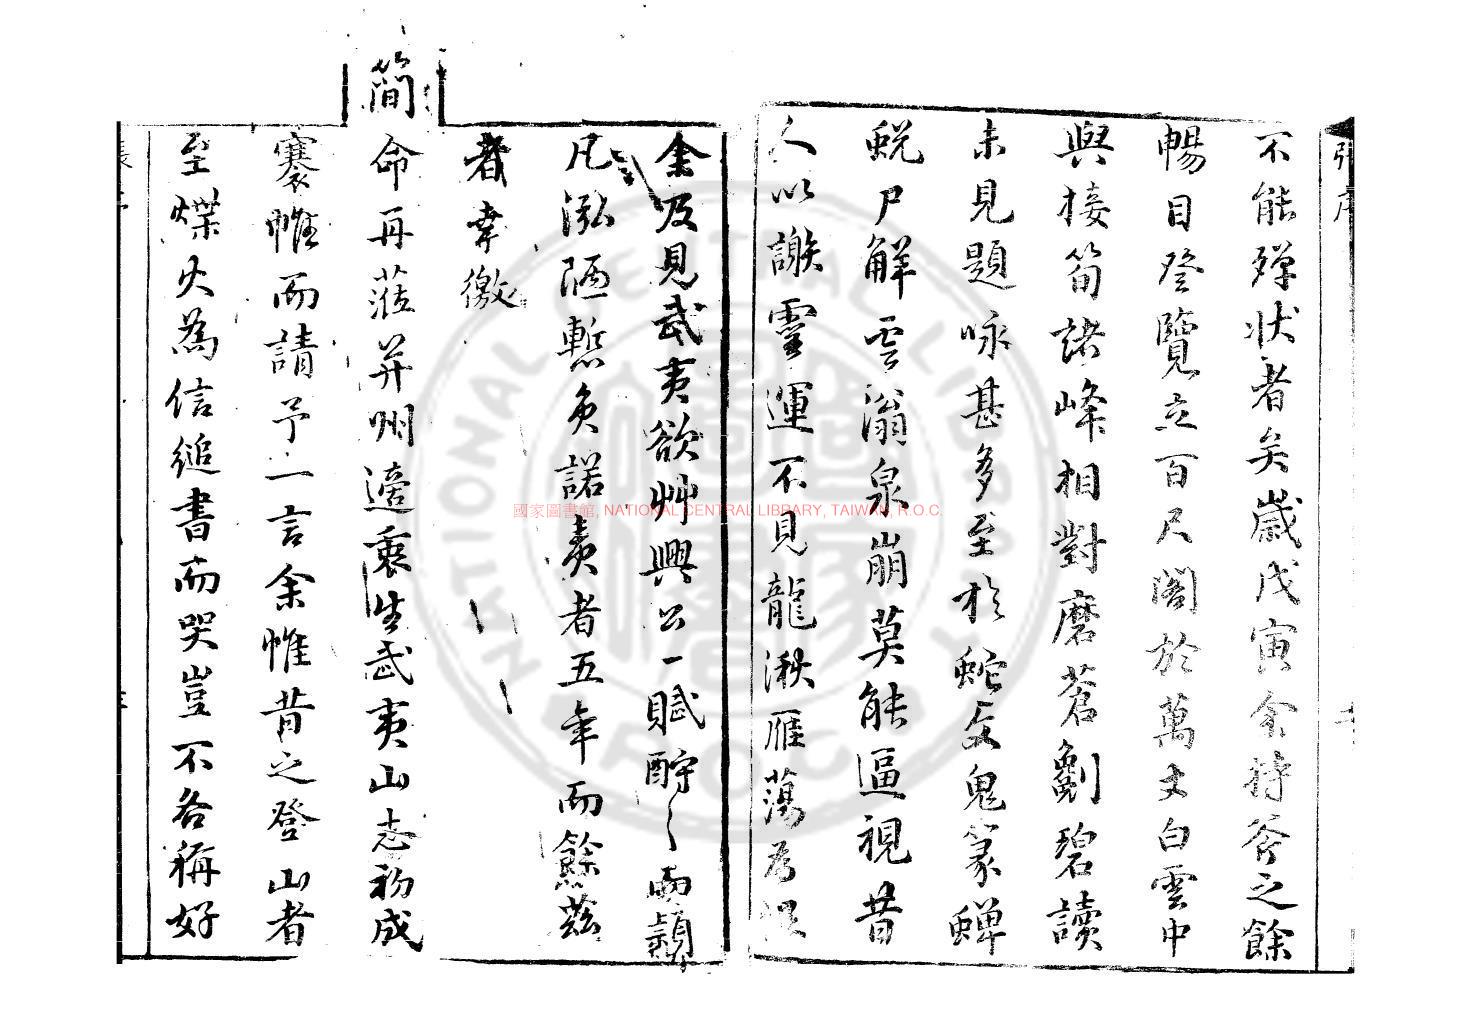 不能殫狀者矣歲戊寅余持斧之餘
暢目登覽立百尺閣於萬丈白雲中
與接筍諸峰相對磨蒼劚碧讀
未見題咏甚多至於蛇文鬼篆蟬
蛻尸解雲滃泉崩莫能逼視昔
人以謝靈運不見龍湫雁蕩為恨
余及見武夷欲艸興公一賦酧〻而穎
凡泓陋慙負諾責者五年而餘茲
者幸徼
簡命再蒞并州適裏生武夷山志初成
褰帷而請予一言余惟昔之登山者
至爃火為信縋書而哭豈不各稱好
國家圖書館, NATIONAL CENTRAL LIBRARY, TAIWAN, R.O.C.
NATIONAL CENTRAL LIBRARY
R.O.C.